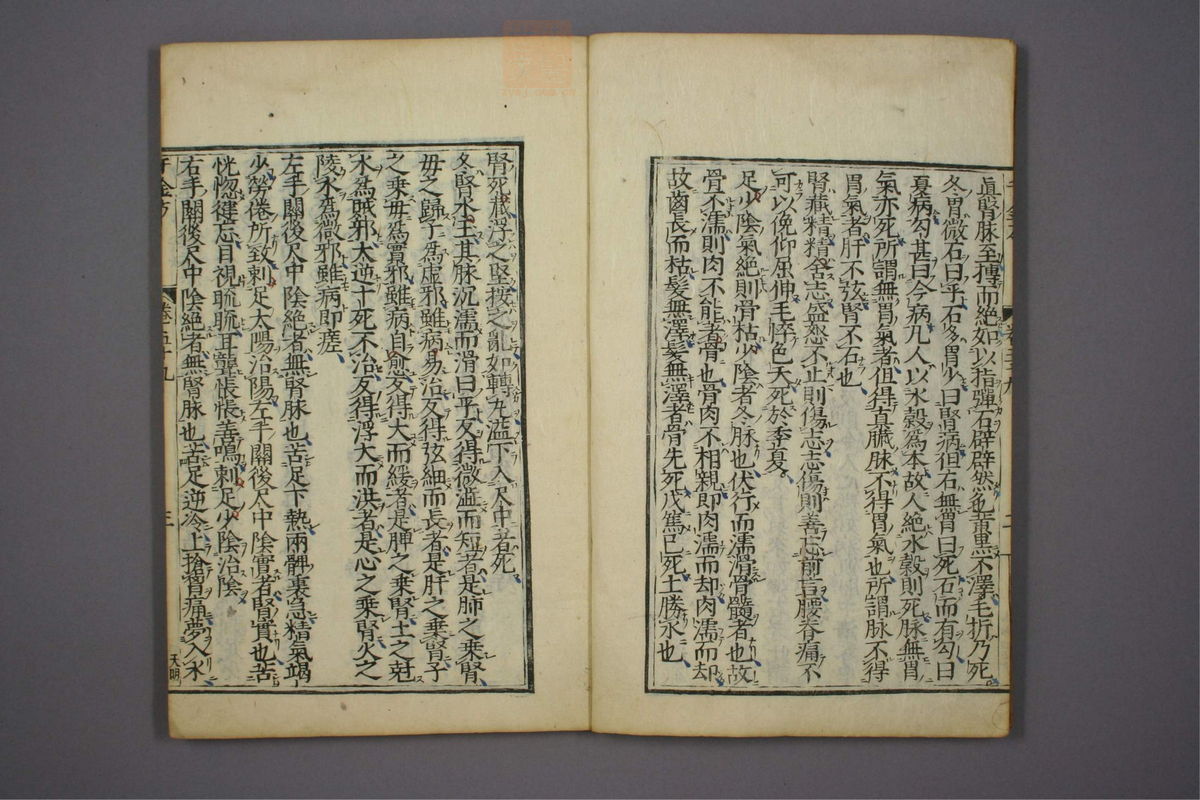 眞腎脉至摶而絶如以指彈石辟辟然色黄黒不澤毛折乃死
冬胃微石曰平石多胃少曰腎病但石無胃曰死石而有勾曰
夏病勾甚曰今病凡人以水穀爲本故人絶水穀則死脉無胃
氣亦死所謂無胃氣者但得真臓脉不得胃氣也所謂脉不得
胃氣者肝不弦腎不石也
腎藏精精舎志盛怒不止則傷志志傷則善忘前言腰脊痛不
可以俛仰屈伸毛悴色夭死於季夏
足少陰氣絶則骨枯少陰者冬脉也伏行而濡滑骨髓者也故
骨不濡則肉不能著骨也骨肉不相親即肉濡而却肉濡而却
故齒長而枯髮無澤髮無澤者骨先死戊篤己死土勝水也
腎死藏浮之堅按之亂如轉丸溢下入尺中者死
冬腎水王其脉沉濡而滑曰平反得微濇而短者是肺之乗腎
母之歸子爲虚邪雖病易治反得弦細而長者是肝之乗腎子
之乗母爲實邪雖病自愈反得大而緩者是脾之乗腎土之尅
水爲賊邪大逆十死不治反得浮大而洪者是心之乗腎火之
陵水爲微邪雖病即瘥
左手關後尺中陰絶者無腎脉也苦足下熱兩髀裏急精氣竭
少勞倦所致刺足太陽治陽左手關後尺中陰實者腎實也苦
恍惚健忘目視䀮䀮耳聾悵悵善鳴刺足少陰治陰
右手關後尺中陰絶者無腎脉也苦足逆冷上搶胷痛夢入水
千金方
卷五十九
三
天明